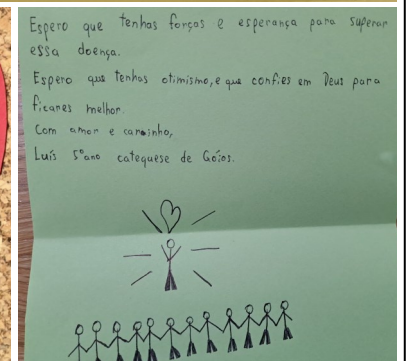 Espero que tenhas forças e esperança para superar
essa doença.
Espero que tenhas otimismo, e que confies em Deus para
ficares melhor.
Com amor e carinho,
Luís 5º ano catequese de Góios.